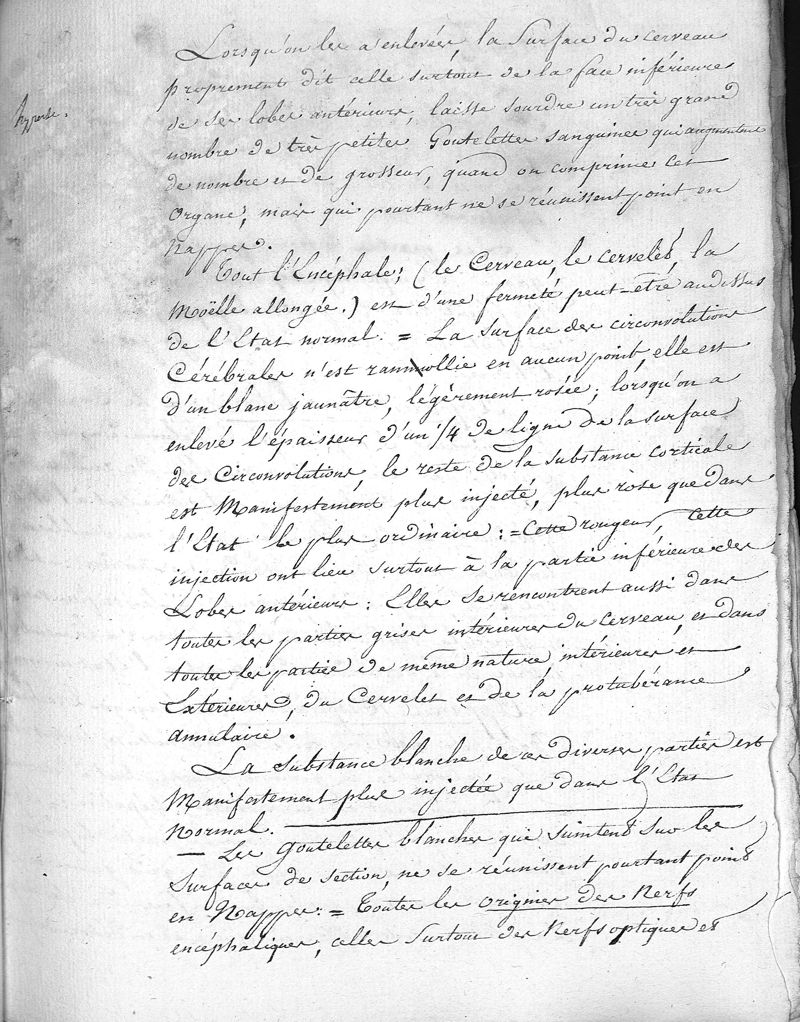 Lorsqu'on les a enlevées, la surface du cerveau
proprement dit celle surtout de la face inférieure
de ses lobes antérieurs, laisse sourdre un très grand
nombre de très petites Gouteletter sanguines qui augmentent
de nombre et de grosseur, quand on comprime cet
Organe, mais qui pourtant ne se réunissent point en
Nappes.
Tout l'Encéphale; (le Cerveau, le cervelet, la
Moëlle allongée.) est d'une fermeté peut-être audessus
de l'Etat normal. = La surface des circonvolutions
Cérébrales n'est rammollie en aucun point, elle est
d'un blanc jaunâtre, légèrement rosée; lorsqu'on a
enlevé l'épaisseur d'un 1/4 de ligne de la surface
des Circonvolutions, le reste de la substance corticale
est Manifestement plus injecté, plus rose que dans
l'Etat le plus ordinaire : = Cette rougeur, cette
injection ont lieu surtout à la partie inférieure des
Lobes antérieurs : Elles se rencontrent aussi dans
toutes les parties grises intérieures du cerveau, et dans
toutes les partie de même nature, intérieures et
Extérieures, du Cervelet et de la protubérance
annulaire.
La substance blanche de ces diverses parties est
Manifestement plus injectée que dans l'Etat
Normal.
— Les Goutelettes blanches qui suintent sur les
Surfaces de section, ne se réunissent pourtant point
en Nappes: = Toutes les origines des Nerfs
encéphaliques, celles surtout des Nerfs optiques et